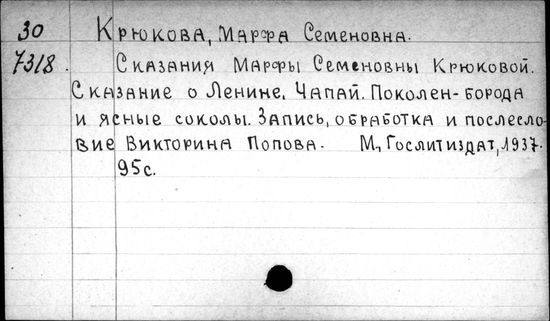 30 Крюкова, Марфа Семеновна.
7318. Сказания Марфы Семеновны Крюковой.
Сказание о Ленине. Чапай. Поколен-борода
и ясные соколы. Запись, обработка и послесло-
вие Викторина Попова. М., Гослитиздат, 1937.
95с.